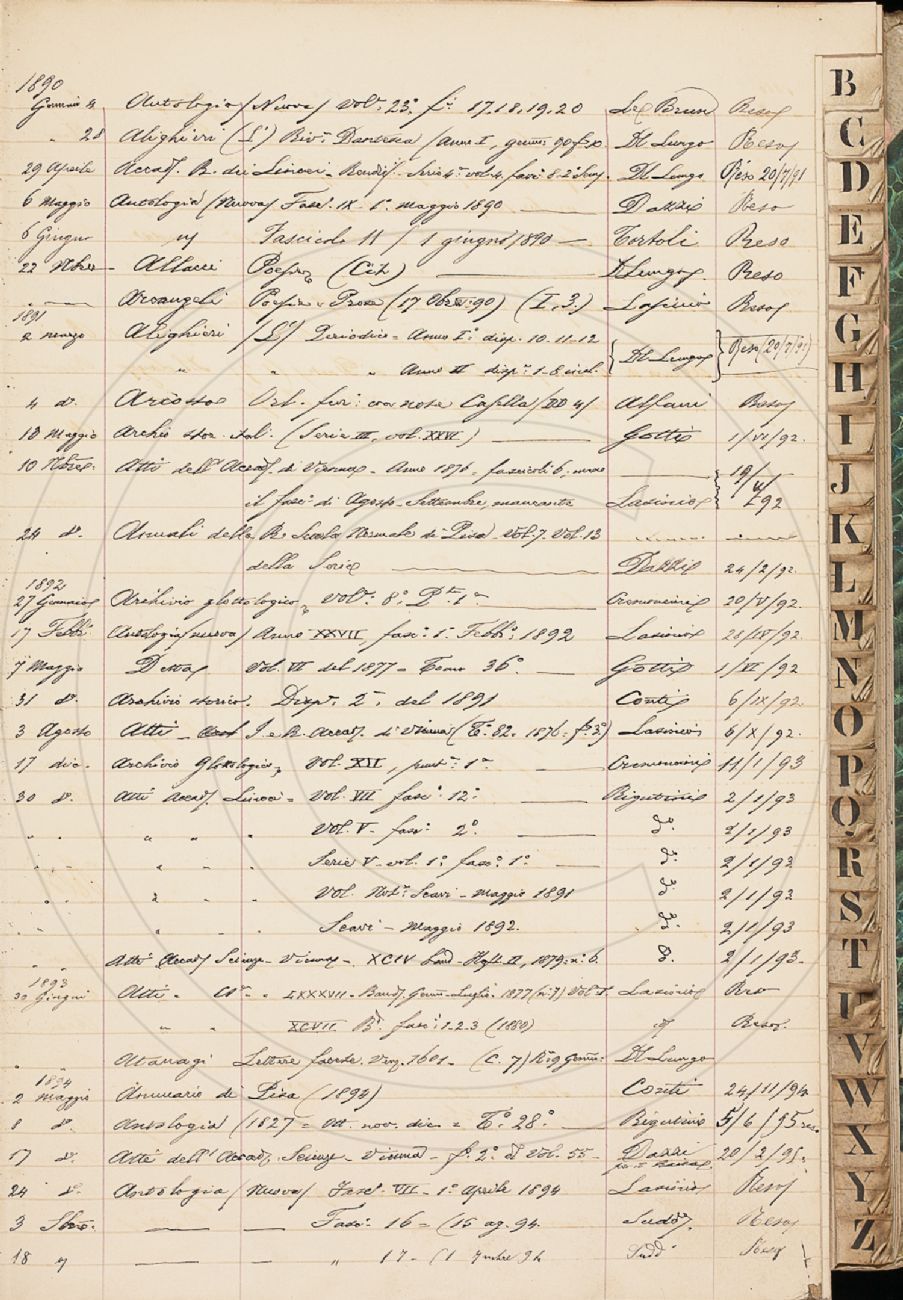 1890
Gennaio 4 Antologia (Nuova) Vol. 23° f. 17.18.19.20 Le Brun Reso
" 28 Alighieri (L') Riv. Dantesca (Anno I, genn. 90 Del Lungo Reso
29 Aprile Accad. R. dei Lincei - Rendic. Serie 4ª vol. 4. fasc. 8. 2° Sem. Del Lungo Reso 20/7/91
6 Maggio Antologia (Nuova) Fasc. IX - 1° maggio 1890 — Dazzi Reso
6 Giugno " Fascicolo 11 / 1 giugno 1890 — Tortoli Reso
22 9bre Allacci Poesie (Cit) — Del Lungo Reso
" — Arcangeli Poesie e Prose (17 Xbre 90) (I. 3.) Lasinio Reso
1891
2 marzo Alighieri (L') Periodico - Anno I° disp. 10. 11. 12 Del Lungo Reso (20/7/91)
" " " Anno II disp. 1-8 incl.
4 d°. Ariosto Orl. fur: con note Casella Alfani Reso
18 Maggio Archio stor. ital. (Serie III, vol. XXVI) — Gotti 1/VI/92.
10 9bre. Atti dell'Accad. di Vienna - Anno 1876 - fascicoli 6, meno 19/
il fasc. di Agosto-Settembre, mancante Lasinio V/92
24 d°. Annali della R. Scuola Normale di Pisa - Vol. 7. Vol. 13
della Serie — Dazzi 24/2/92.
1892
27 Gennaio Archivio glottologico, Vol. 8° P.te 1ª — Cremoncini 20/V/92.
17 Febb. Antologia (nuova) Anno XXVII, fasc. 1° Febb. 1892 Lasinio 21/IV/92.
7 Maggio Detta Vol. VI del 1877 - Tomo 36° — Gotti 1/VI/92
31 d°. Archivio storico. Disp. 2ª. del 1891 Conti 6/IX/92.
3 Agosto Atti - I. e R. Accad. di Vienna (T. 82. 1876. f. 3°) Lasinio 6/X/92.
17 dic. Archivio Glottologico, Vol. XII, punt. 1ª — Cremoncini 11/1/93
30 d°. Atti Accad. Lincei - Vol. VII fasc. 12° — Rigutini 2/1/93
" " " " " Vol. V - fasc. 2° — d°. 2/1/93
" " " " " Serie V - vol. 1° fasc. 1° — d°. 2/1/93
" " " " " Vol. Not. Scavi - Maggio 1891 d°. 2/1/93
" " " " " Scavi - Maggio 1892. d°. 2/1/93
" " Atti Accad. Scienze - Vienna - XCIV Band - Heft II, 1879. n. 6. d°. 2/1/93.
1893
30 Giugni Atti - " LXXXVII - Band. Genn-Luglio. 1877 (n. 7) Lasinio Reso
" " XCVII Bd. fasc. 1-2.3 (1880) " Reso.
" Atanagi Lettere facete. Ven. 1601 - (C. 7) Del Lungo
1894
2 Maggio Annuario di Pisa (1894) Conti 24/11/94.
8 d°. Antologia (1827 = ott. nov. dic. = T° 28° — Rigutini 5/6/95
17 d°. Atti dell'Accad. Scienze - Vienna - f. 2° d. Vol. 55 - Dazzi 20/2/95.
24 d°. Antologia (Nuova) Fasc. VII - 1° Aprile 1894 Lasinio Reso
3 7bre. — — Fasc. 16 = (15 ag. 94. Sudd. Reso
18 " — — " 17 - (1 7mbre 94 Sudd. Reso
B
C
D
E
F
G
H
I
J
K
L
M
N
O
P
Q
R
S
T
U
V
W
X
Y
Z